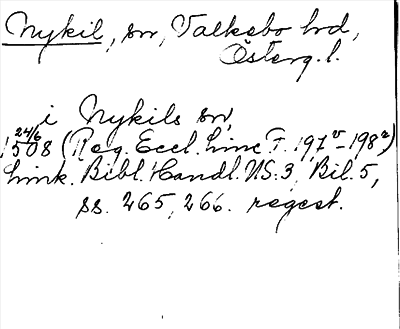 Nykil, sn, Valkebo hd,
Österg. l.
i Nykils sn,
24/6
1508 (Reg. Eccl. Linc F. 197v-198r)
Link. Bibl. Handl. NS. 3, Bil. 5,
ss. 265, 266. regest.